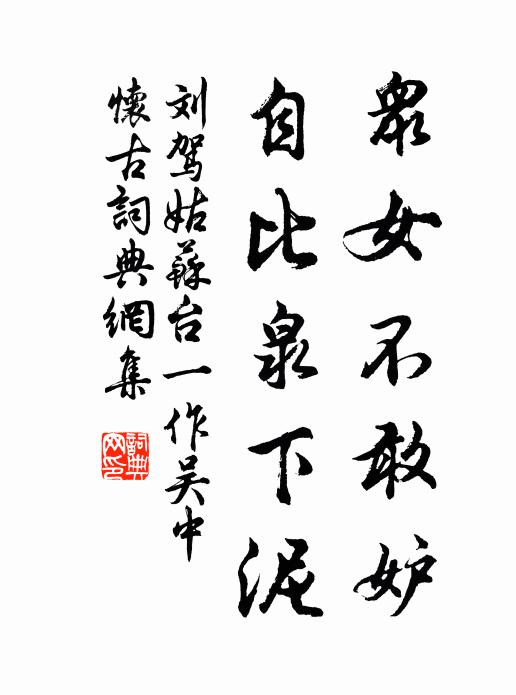 眾女不敢妒
自比泉下泥
刘驾姑蘇台一作吴中
懷古詞典網集
詞典网印